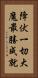 降伏一切大
魔最勝成就